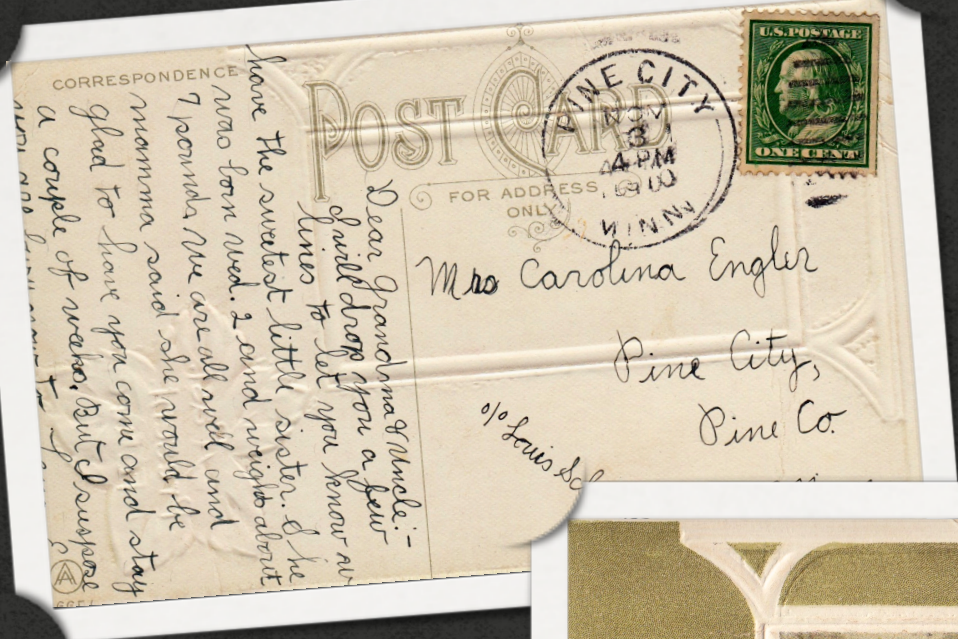 CORRESPONDENCE
POST CARD
FOR ADDRESS
ONLY
U.S. POSTAGE
ONE CENT
PINE CITY
NOV
3
4-PM
MINN
Mrs Carolina Engler
Pine City,
Pine Co.
c/o Louis
Dear Grandma & Uncle:-
I will drop you a few
lines to let you know we
have the sweetest little sister. She
was born wed. 2 and weighs about
7 pounds. We are all well and
mamma said she would be
glad to have you come and stay
a couple of weeks. But I suspose
A